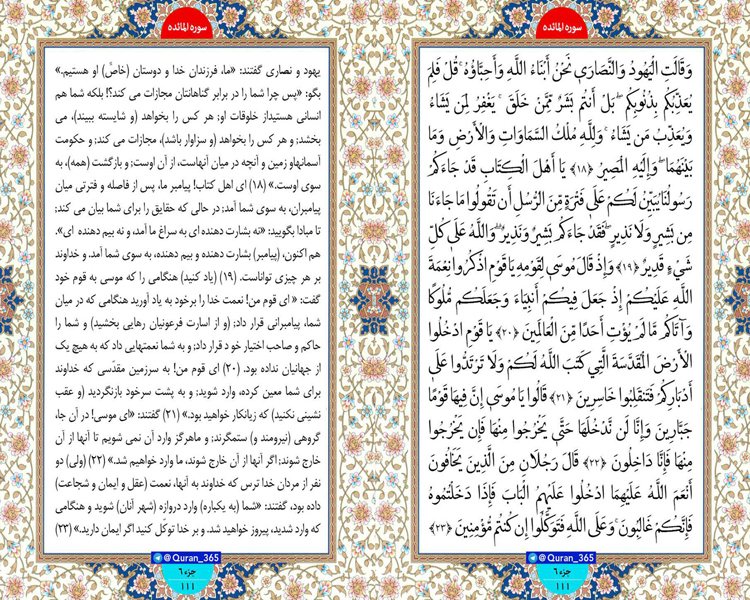 سوره المائده
وَقَالَتِ الْیَهُودُ وَالنَّصَارَى نَحْنُ أَبْنَاءُ اللَّهِ وَأَحِبَّاؤُهُ ۚ قُلْ فَلِمَ
یُعَذِّبُکُم بِذُنُوبِکُم ۖ بَلْ أَنتُم بَشَرٌ مِّمَّنْ خَلَقَ ۚ یَغْفِرُ لِمَن یَشَاءُ
وَیُعَذِّبُ مَن یَشَاءُ ۚ وَلِلَّهِ مُلْکُ السَّمَاوَاتِ وَالْأَرْضِ وَمَا
بَیْنَهُمَا ۖ وَإِلَیْهِ الْمَصِیرُ ﴿۱۸﴾ یَا أَهْلَ الْکِتَابِ قَدْ جَاءَکُمْ
رَسُولُنَا یُبَیِّنُ لَکُمْ عَلَى فَتْرَةٍ مِّنَ الرُّسُلِ أَن تَقُولُوا مَا جَاءَنَا
مِن بَشِیرٍ وَلَا نَذِیرٍ ۖ فَقَدْ جَاءَکُم بَشِیرٌ وَنَذِیرٌ ۗ وَاللَّهُ عَلَى کُلِّ
شَیْءٍ قَدِیرٌ ﴿۱۹﴾ وَإِذْ قَالَ مُوسَى لِقَوْمِهِ یَا قَوْمِ اذْکُرُوا نِعْمَةَ
اللَّهِ عَلَیْکُمْ إِذْ جَعَلَ فِیکُمْ أَنبِیَاءَ وَجَعَلَکُم مُّلُوکًا
وَآتَاکُم مَّا لَمْ یُؤْتِ أَحَدًا مِّنَ الْعَالَمِینَ ﴿۲۰﴾ یَا قَوْمِ ادْخُلُوا
الْأَرْضَ الْمُقَدَّسَةَ الَّتِی کَتَبَ اللَّهُ لَکُمْ وَلَا تَرْتَدُّوا عَلَى
أَدْبَارِکُمْ فَتَنقَلِبُوا خَاسِرِینَ ﴿۲۱﴾ قَالُوا یَا مُوسَى إِنَّ فِیهَا قَوْمًا
جَبَّارِینَ وَإِنَّا لَن نَّدْخُلَهَا حَتَّى یَخْرُجُوا مِنْهَا فَإِن یَخْرُجُوا
مِنْهَا فَإِنَّا دَاخِلُونَ ﴿۲۲﴾ قَالَ رَجُلَانِ مِنَ الَّذِینَ یَخَافُونَ
أَنْعَمَ اللَّهُ عَلَیْهِمَا ادْخُلُوا عَلَیْهِمُ الْبَابَ فَإِذَا دَخَلْتُمُوهُ
فَإِنَّکُمْ غَالِبُونَ ۚ وَعَلَى اللَّهِ فَتَوَکَّلُوا إِن کُنتُم مُّؤْمِنِینَ ﴿۲۳﴾
@Quran_365
جزء ۶
۱۱۱
سوره المائده
یهود و نصاری گفتند: «ما، فرزندان خدا و دوستان (خاصّ) او هستیم.»
بگو: «پس چرا شما را در برابر گناهانتان مجازات می کند؟! بلکه شما هم
انسانی هستیداز خلوقات او; هر کس را بخواهد (و شایسته ببیند)، می
بخشد; و هر کس را بخواهد (و سزاوار باشد)، مجازات می کند; و حکومت
آسمانهاو زمین و آنچه در میان آنهاست، از آن اوست; و بازگشت (همه)، به
سوی اوست.» (۱۸) ای اهل کتاب! پیامبر ما، پس از فاصله و فترتی میان
پیامبران، به سوی شما آمد; در حالی که حقایق را برای شما بیان می کند;
تا مبادا بگویید: «نه بشارت دهنده ای به سراغ ما آمد، و نه بیم دهنده ای».
هم اکنون، (پیامبر) بشارت دهنده و بیم دهنده، به سوی شما آمد. و خداوند
بر هر چیزی تواناست. (۱۹) (یاد کنید) هنگامی را که موسی به قوم خود
گفت: « ای قوم من! نعمت خدا را برخود به یاد آورید هنگامی که در میان
شما، پیامبرانی قرار داد; (و از اسارت فرعونیان رهایی بخشید) و شما را
حاکم و صاحب اختیار خود قرار داد; و به شما نعمتهایی داد که به هیچ یک
از جهانیان نداده بود. (۲۰) ای قوم من! به سرزمین مقدّسی که خداوند
برای شما معین کرده، وارد شوید; و به پشت سرخود بازنگردید (و عقب
نشینی نکنید) که زیانکار خواهید بود.» (۲۱) گفتند: «ای موسی! در آن جا،
گروهی (نیرومند و) ستمگرند; و ماهرگز وارد آن نمی شویم تا آنها از آن
خارج شوند; اگر آنها از آن خارج شوند، ما وارد خواهیم شد.» (۲۲) (ولی) دو
نفر از مردان خدا ترس که خداوند به آنها، نعمت (عقل و ایمان و شجاعت)
داده بود، گفتند: «شما (به یکباره) وارد دروازه (شهر آنان) شوید و هنگامی
که وارد شدید، پیروز خواهید شد. و بر خدا توکّل کنید اگر ایمان دارید.» (۲۳)
@Quran_365
جزء ۶
۱۱۱